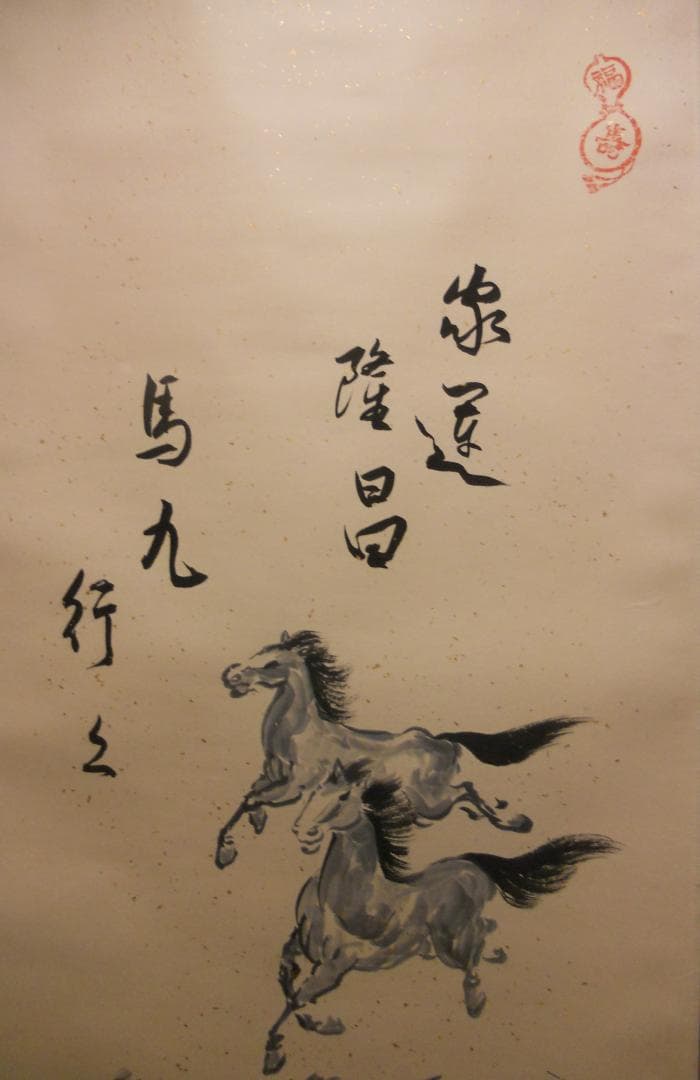 福
寿
家運
隆昌
馬九
行久